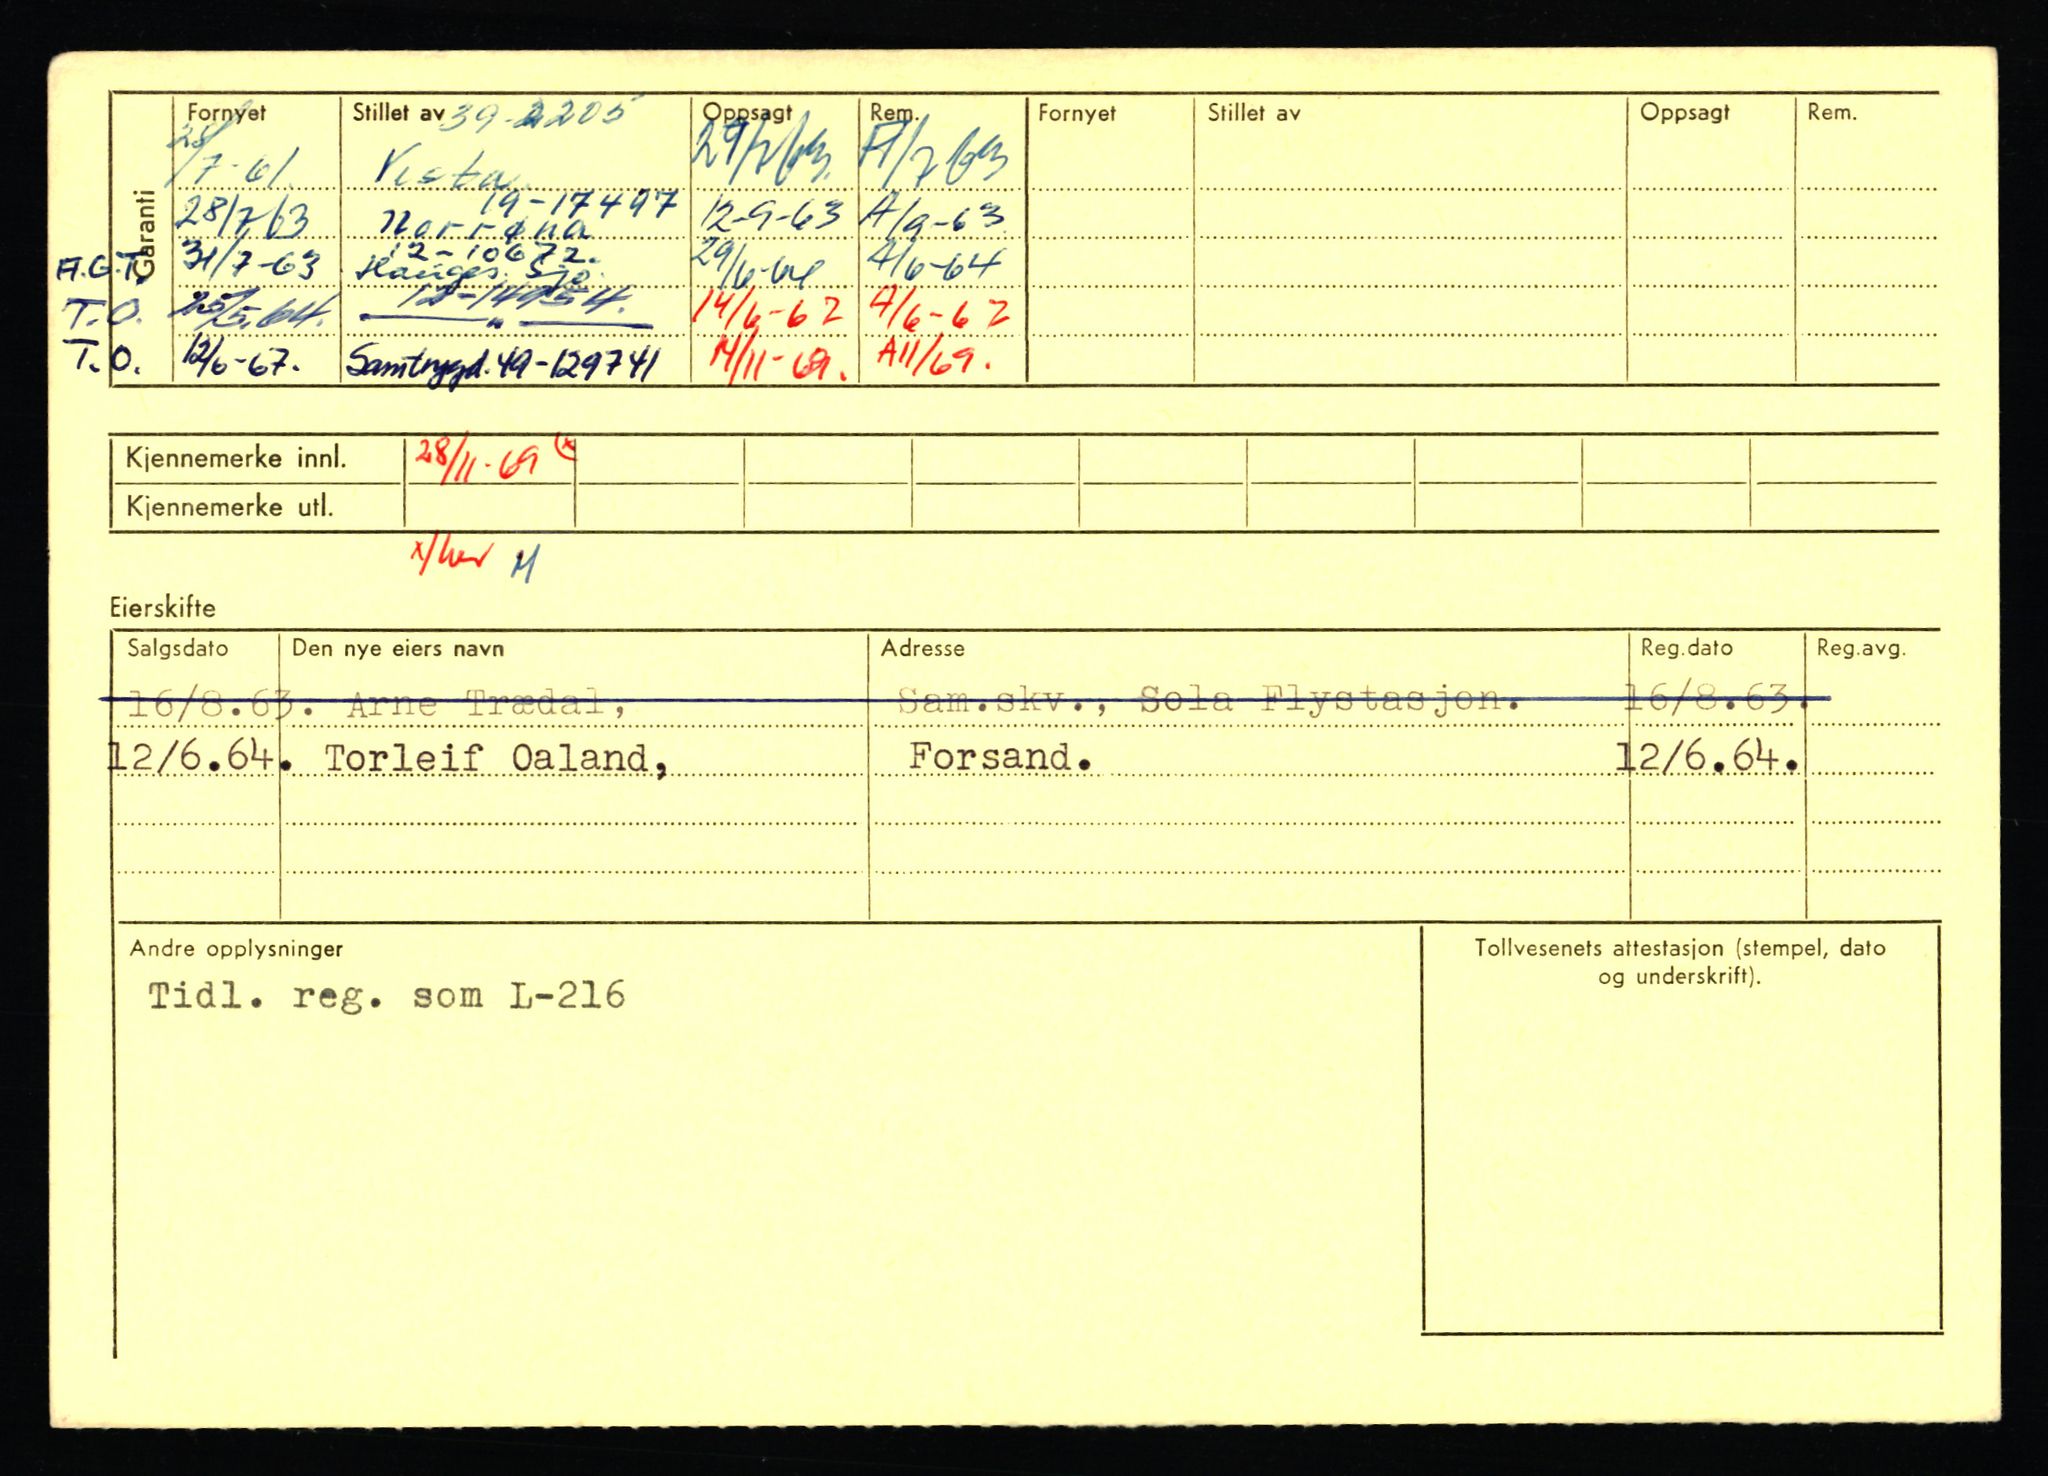 Garanti
Fornyet Stillet av Oppsagt Rem. Fornyet Stillet av Oppsagt Rem.
39-2205
28/7-61. Vesta 29/7/63. A/7/63
19-17497
28/7/63 Norrøna 12-9-63 A/9-63
12-10672.
A.G.T. 31/7-63 Hauges. Sjø. 29/6-64 A/6-64
T.O. 25/5.64. " 14/6-67 A/6-67
T.O. 12/6-67. Samtrygd. 49-129741 14/11-69. A11/69.
Kjennemerke innl. 28/11-69 (x
Kjennemerke utl.
x/her M
Eierskifte
Salgsdato Den nye eiers navn Adresse Reg.dato Reg.avg.
16/8.63. Arne Trædal, Sam.skv., Sola Flystasjon. 16/8.63.
12/6.64. Torleif Oaland, Forsand. 12/6.64.
Andre opplysninger
Tidl. reg. som L-216
Tollvesenets attestasjon (stempel, dato
og underskrift).